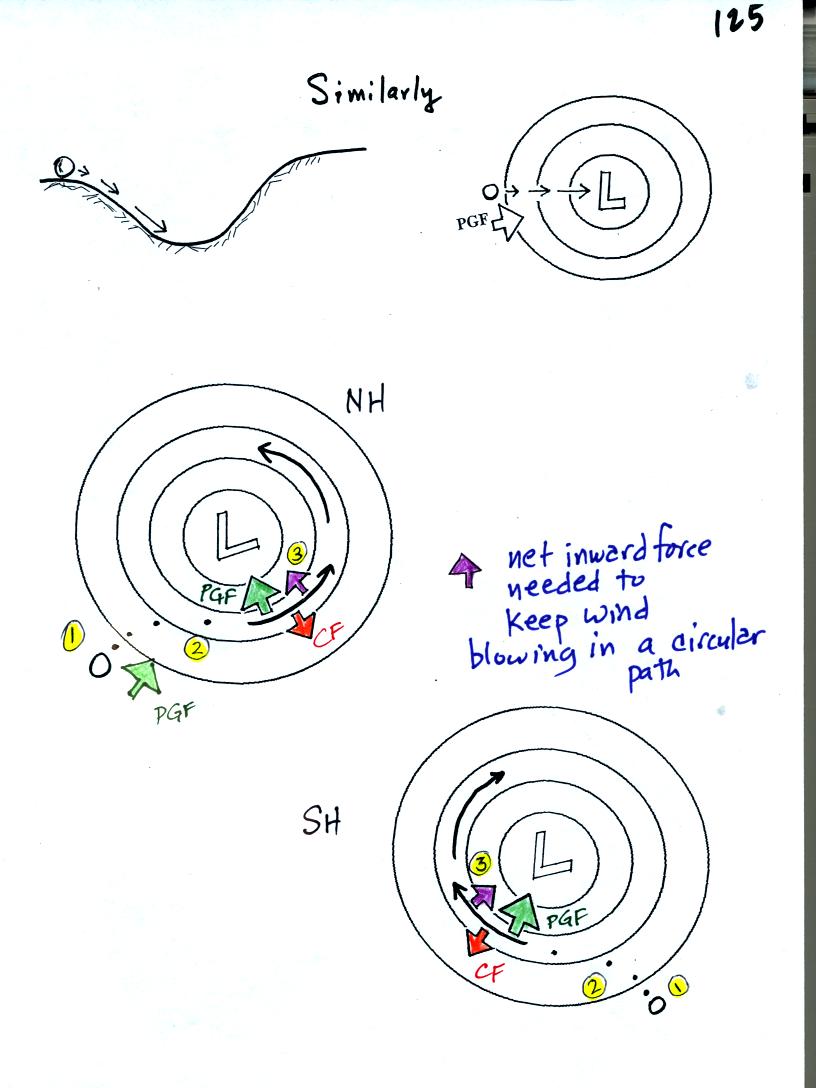 125
Similarly
L
PGF
NH
L
3
PGF
CF
1
2
PGF
net inward force
needed to
keep wind
blowing in a circular
path
SH
L
3
PGF
CF
2
1